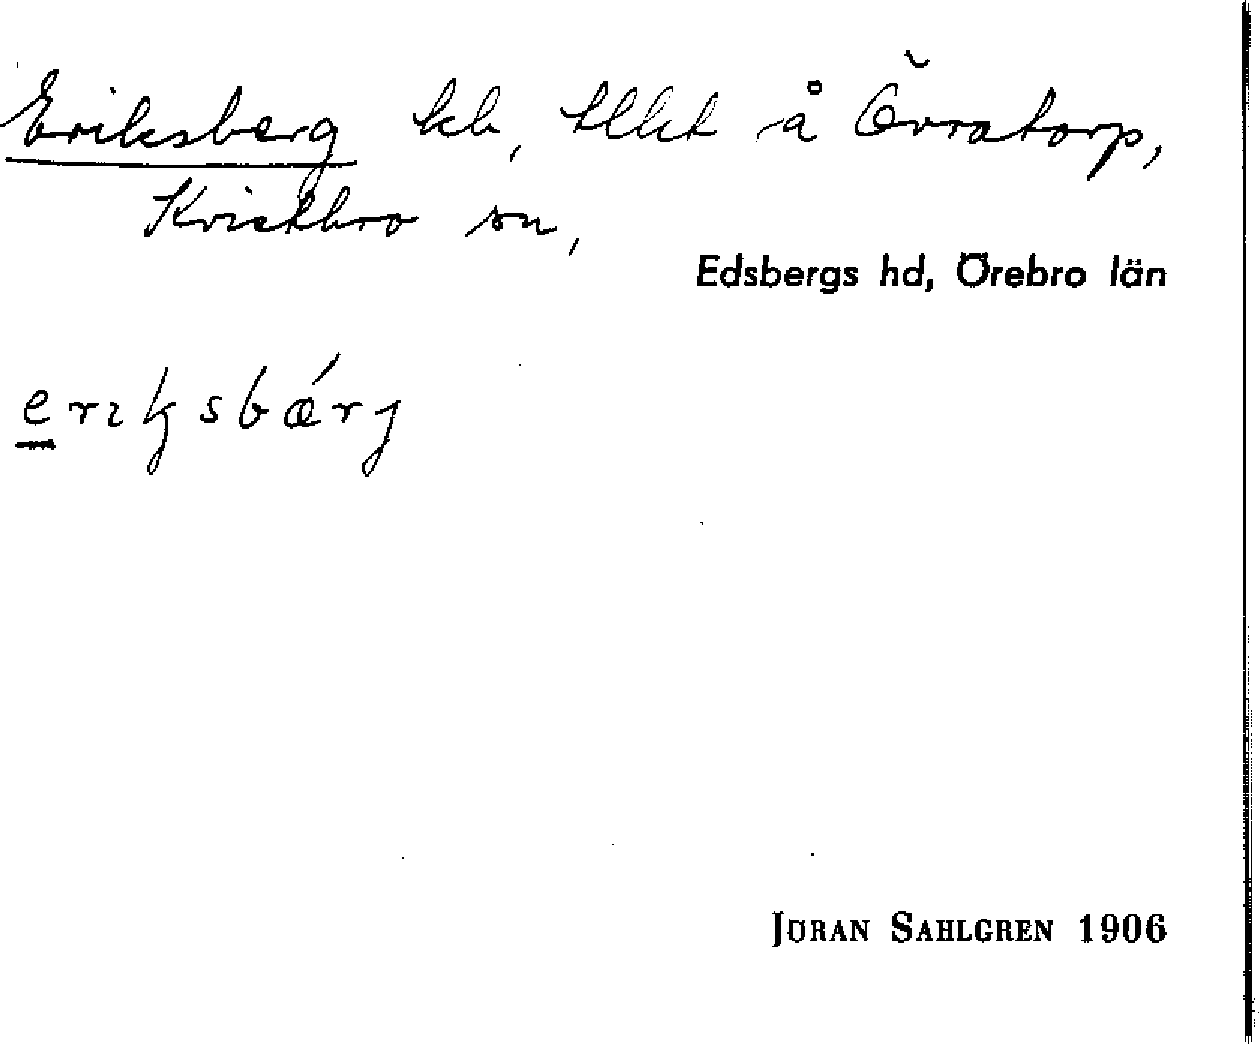 Eriksberg kb, tllht å Övratorp,
Kvistbro sn,
Edsbergs hd, Örebro län
eriksbærj
JÖRAN SAHLGREN 1906